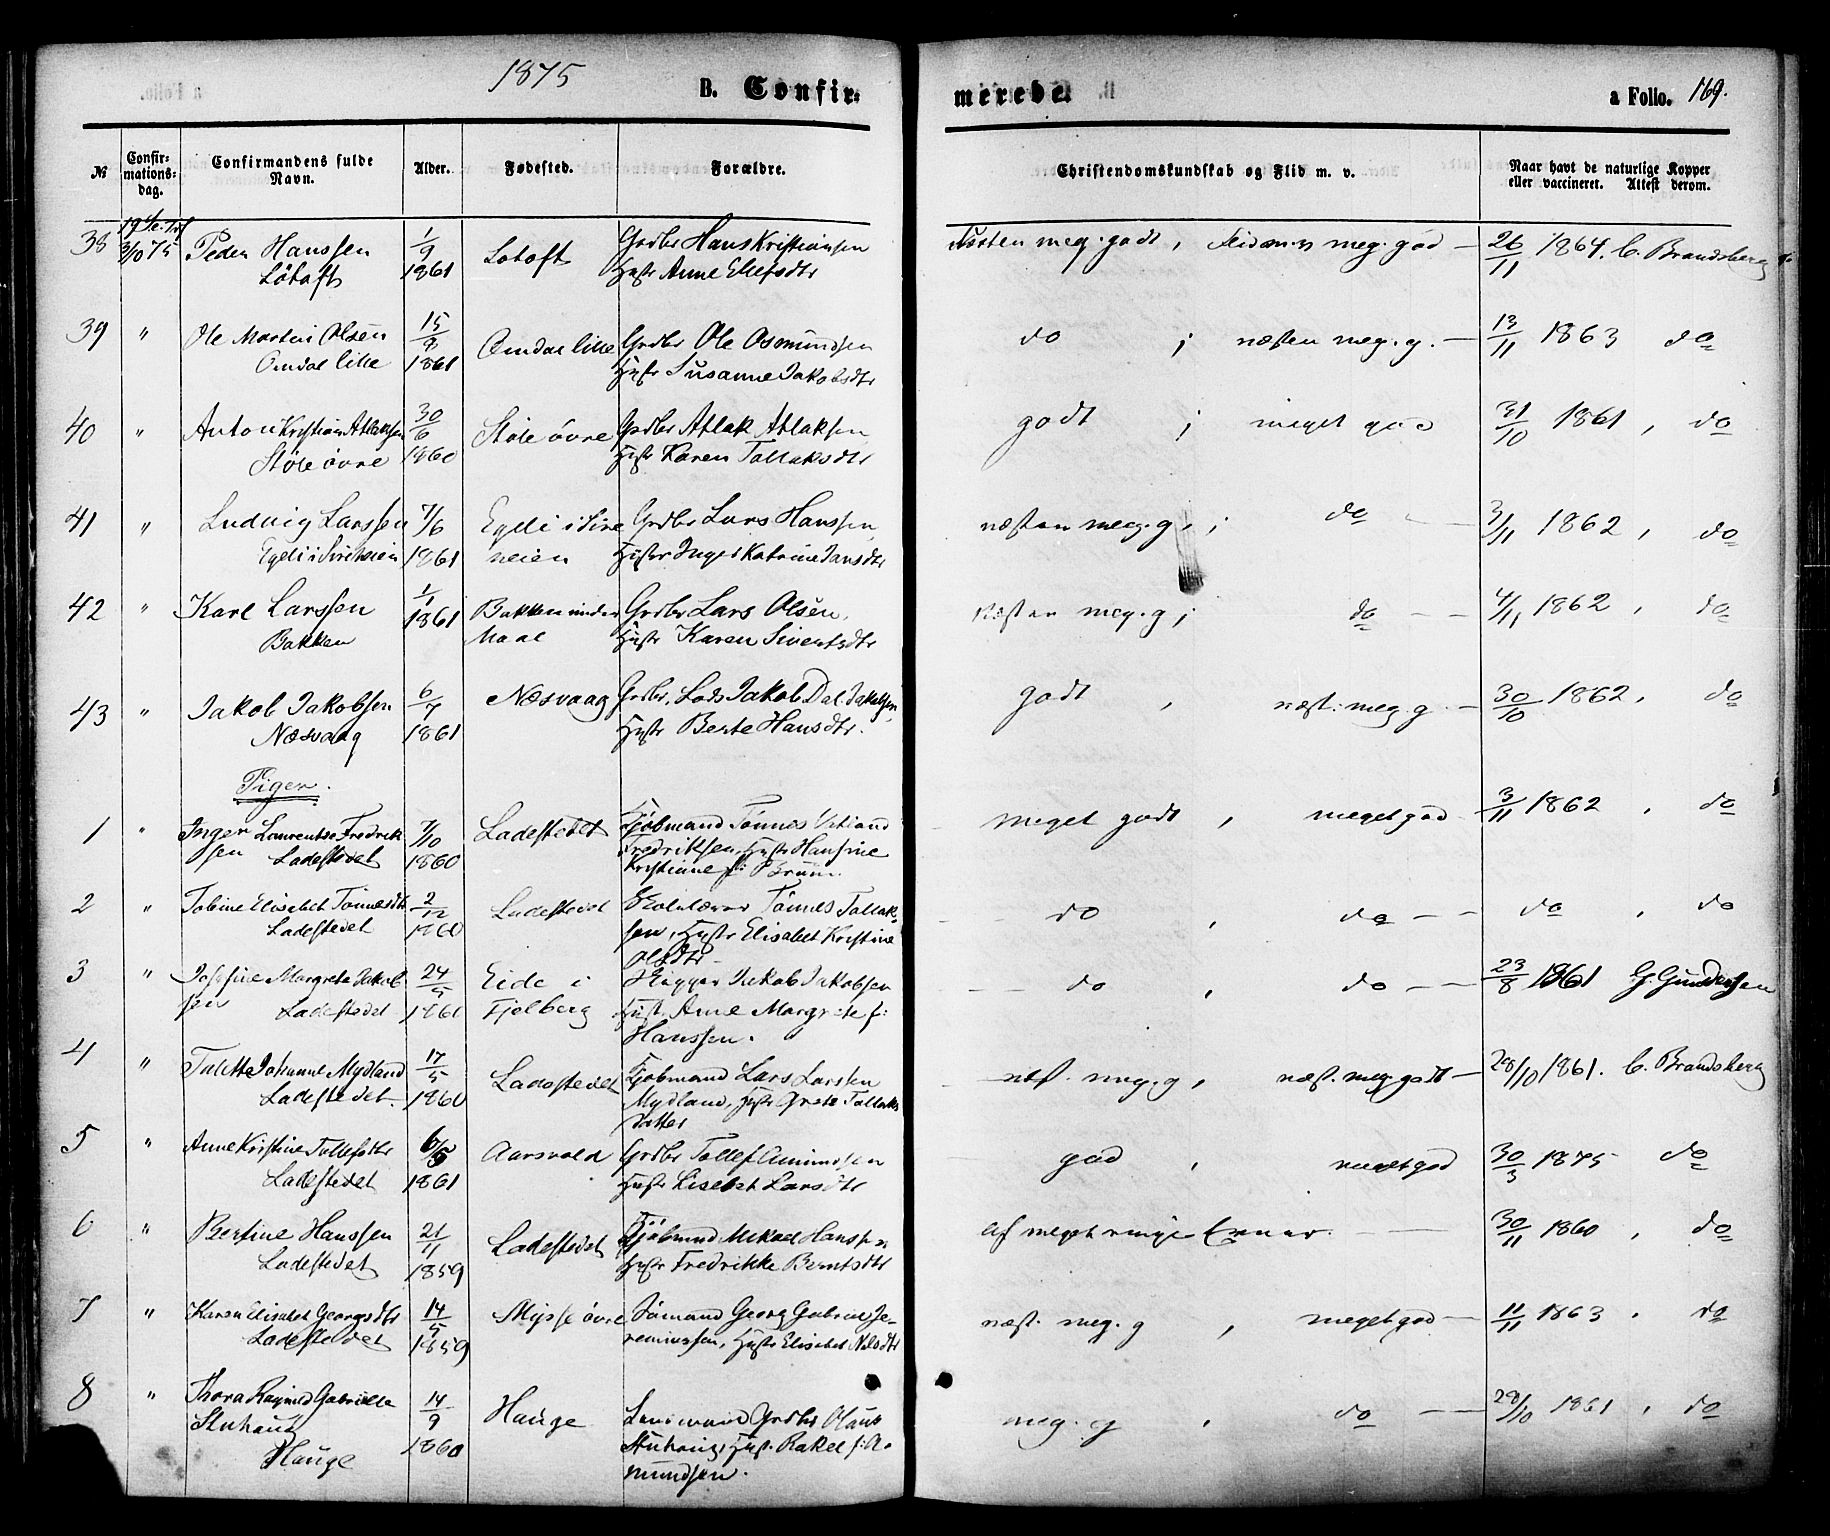 1875
B. Confir-
merede.
a Folio. 169.
№
Confir-
mations-
dag.
Confirmandens fulde
Navn.
Alder.
Fødested.
Forældre.
Christendomskundskab og Flid m. v.
Naar havt de naturlige Kopper
eller vaccineret. Attest derom.
38 3/10 75 Peder Hanssen Løtoft 1/9 1861 Løtoft Grdbr Hans Kristiansen
Hustr Anne Ellefsdtr
Næsten meg. godt, Flid m.v. meg. god — 26/11 1864. C. Brandsberg
39 " Ole Martin Olsen Omdal lille 15/9 1861 Omdal lille Grdbr Ole Osmundsen
Hustr Susanne Jakobsdtr
do ; næsten meg. g. — 13/11 1863 do
40 " Anton Kristian Atlaksen Støle øvre 30/6 1860 Støle øvre Grdbr Atlak Atlaksen
Hustr Karen Tollaksdtr
godt ; meget god 31/10 1861, do
41 " Ludvig Larssen Egdi i 7/6 1861 Egdi i Sire
neien
Grdbr Lars Hanssen,
Hustr Inger Katrine Jansdtr
næsten meg. g, ; do 3/11 1862, do
42 " Karl Larssen Bakken 1/1 1861 Bakken under
Maal
Grdbr Lars Olsen,
Hustr Karen Sivertsdtr
næsten meg. g ; do — — 4/11 1862, do
43 " Jakob Jakobsen Næsvaag 6/7 1861 Næsvaag Grdbr, Lods Jakob Dal. Jakobsen,
Hustr Berte Hansdtr.
godt , næst. meg. g — 30/10 1862, do
Piger.
1 " Inger Laurentse Fredrik
sen Ladestedet 7/10 1860 Ladestedet Kjøbmand Tønnes
Fredriksen, Hustr Hansine
Kristiane f: Bruun.
meget godt , meget god 3/11 1862, do
2 " Tobine Elisabet Tønnesdtr Ladestedet 2/12 1860 Ladestedet Skolelærer Tønnes Tollak-
sen, Hustr Elisabet Kristine
Olsdtr
do , do — — do , do
3 " Josefine Margrete Jakob
sen Ladestedet 24/5 1861 Eide i
Fjelberg
Jakob Jakobsen
Hust. Anne Margrete f:
Hanssen.
do , do — — 23/8 1861 G. Gundersen
4 " Talette Johanne Mydland Ladestedet. 17/5 1860 Ladestedet Kjøbmand Lars Larsen
Mydland, Hustr Grete Tollaks
datter
næst. meg. g, næst. meg. godt — 28/10 1861. C. Brandsberg
5 " Anne Kristine Tollefsdtr Ladestedet 6/5 1861 Aarsvold Grdbr Tollef Amundsen
Hustr Lisebet Larsdtr
god , meget god 30/3 1875 do
6 " Bertine Hanssen Ladestedet 21/11 1859 Ladestedet Kjøbmand Mikael Hanssen
Hustr Fredrikke Berntsdtr
af meget ringe Evner. — 30/11 1860, do
7 " Karen Elisabet Georgsdtr Ladestedet 14/5 1859 Mysse øvre Sømand Georg Gabriel Je-
remiassen, Hustr Elisabet Nilsdtr
næst. meg. g , meget god — 11/11 1863, do
8 " Thora Ragnild Gabrielle
Stuhaug Hauge 14/9 1860 Hauge Lensmand Grdbr Olaus
Stuhaug, Hust. Rakel f: A-
mundsen.
meg. g , do — — 28/10 1861, do